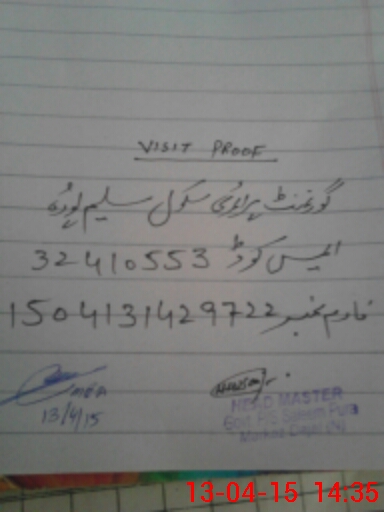 VISIT PROOF
گورنمنٹ پرائمری سکول سلیم پورہ
ایمیس کوڈ 32410553
فارم نمبر 1504131429722
13/4/15
HEAD MASTER
Govt. P/S Saleem Pura
13-04-15 14:35